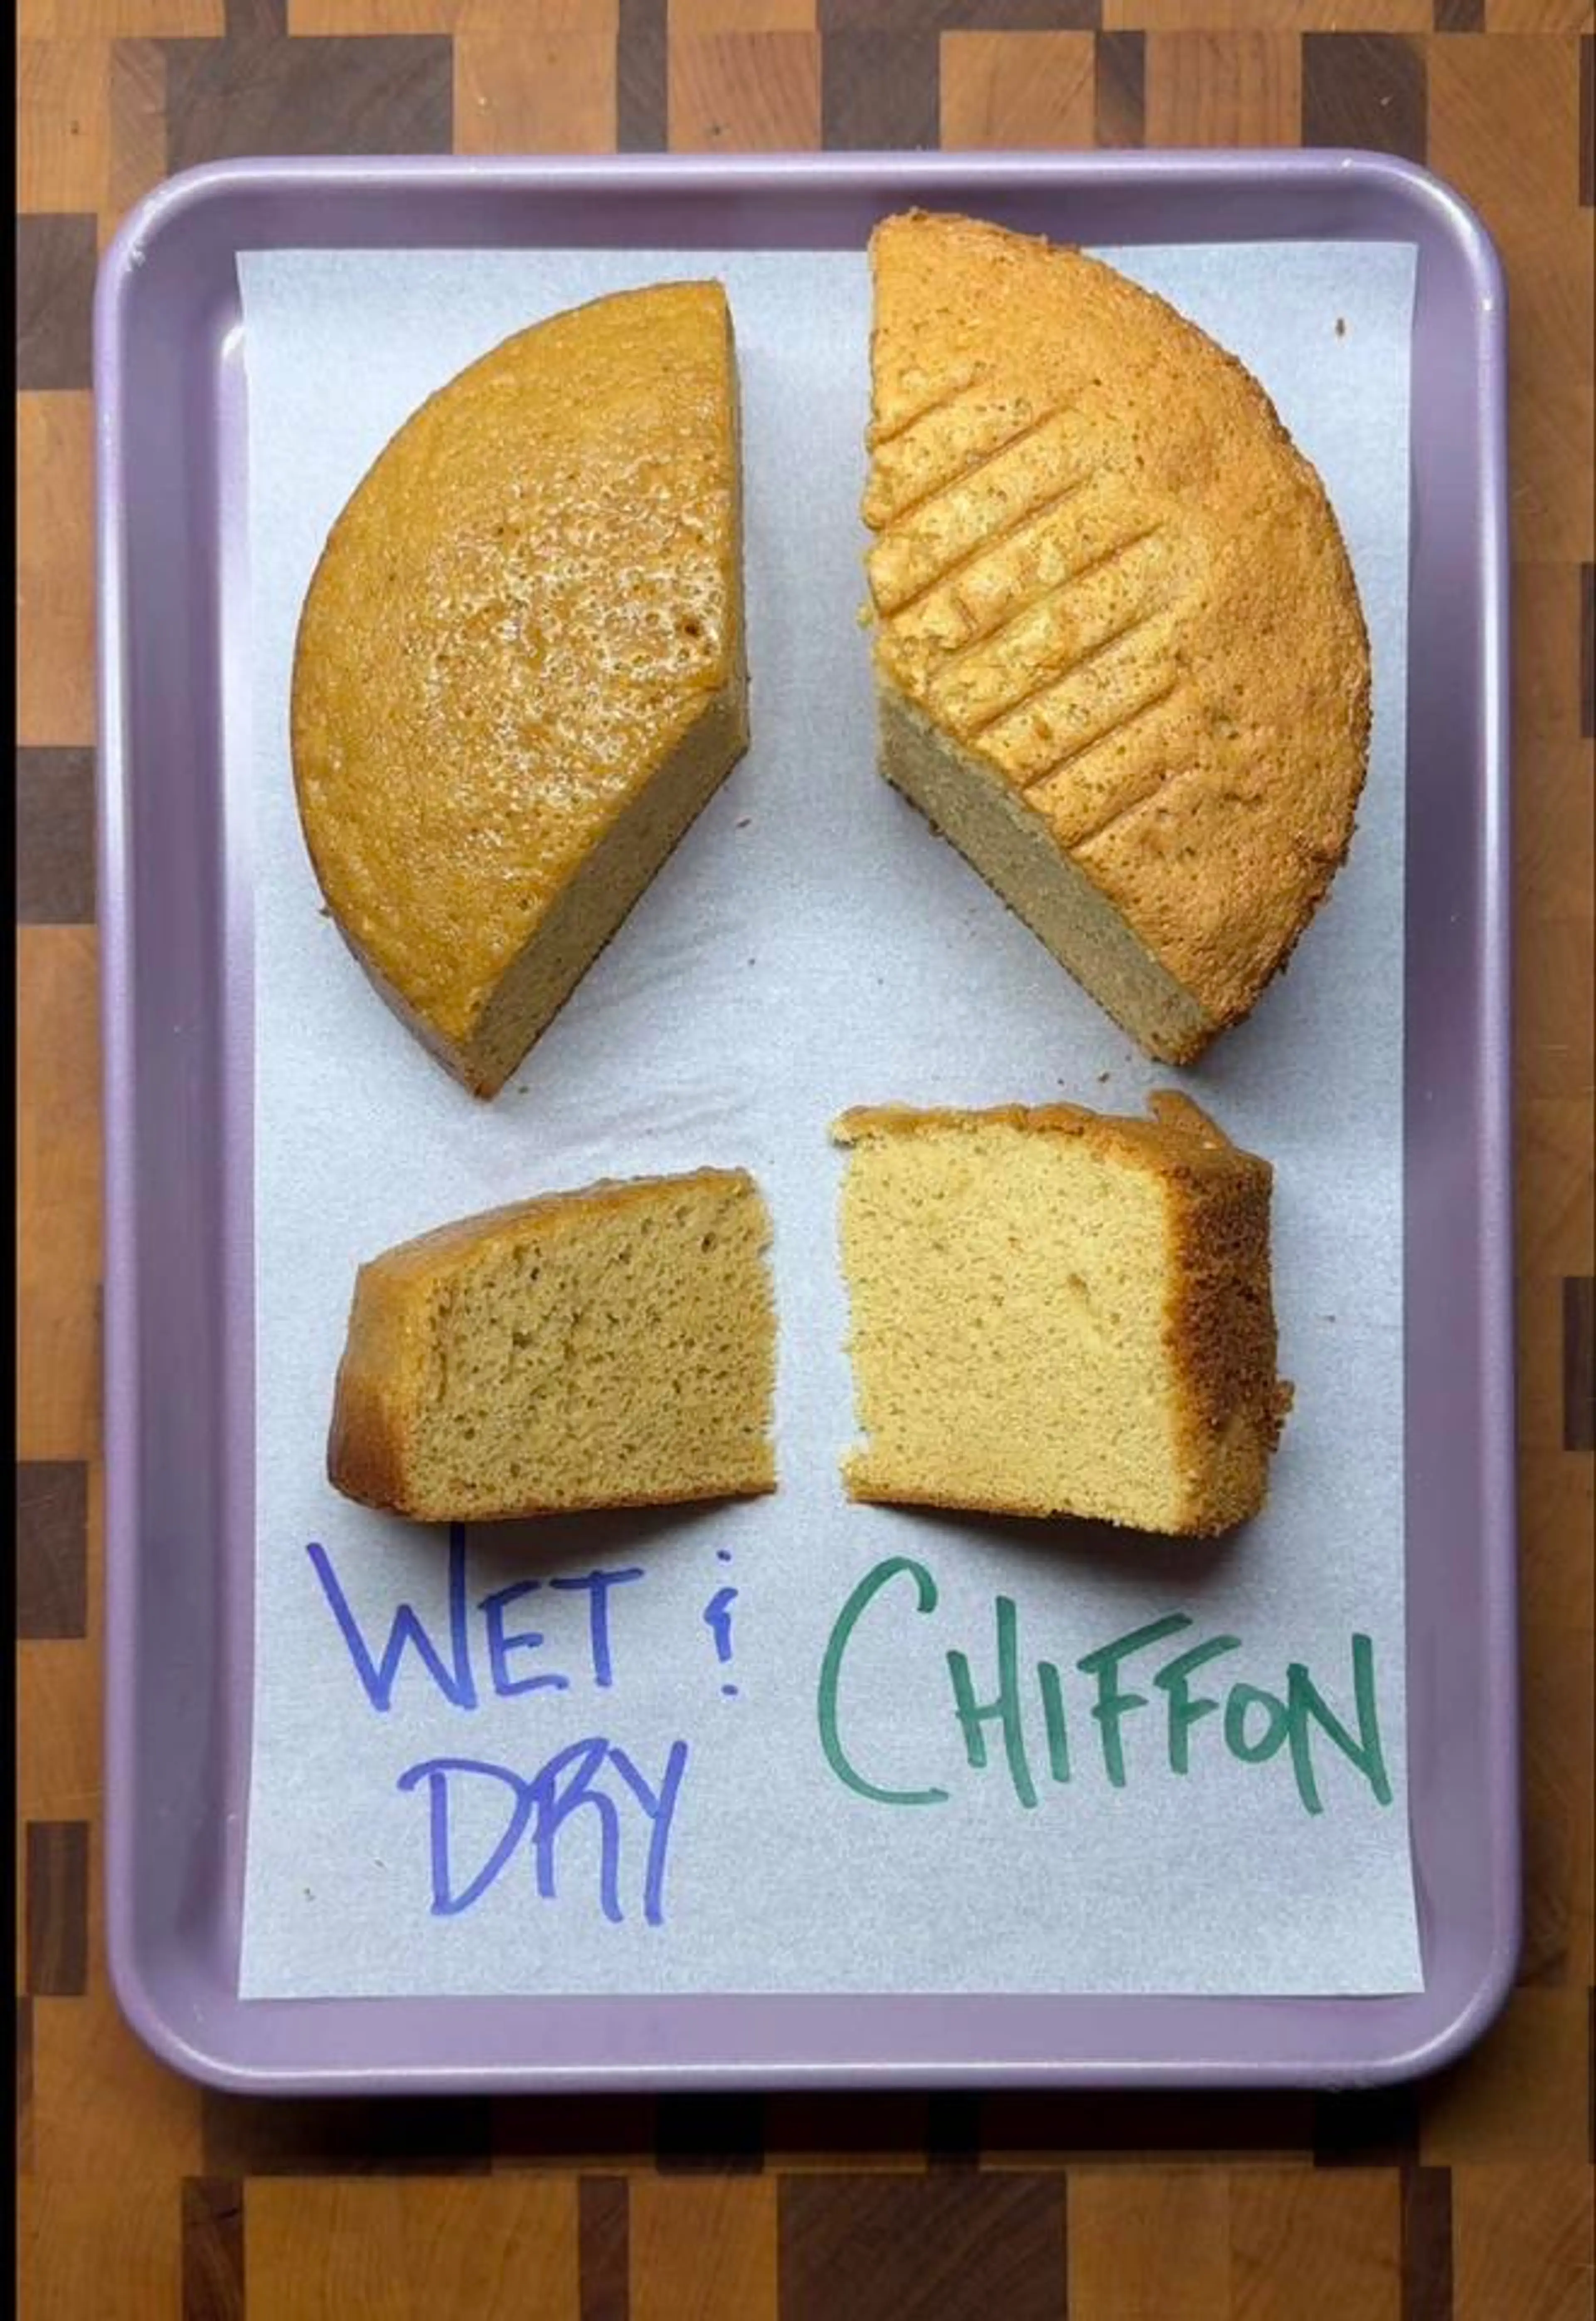 WET &
DRY
CHIFFON